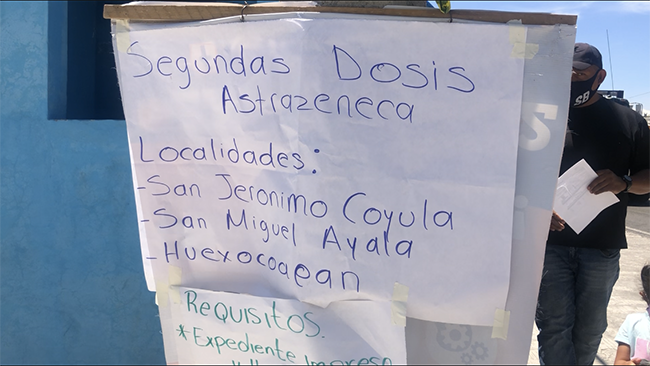 Segundas Dosis
Astrazeneca
Localidades:
-San Jeronimo Coyula
-San Miguel Ayala
-Huexocoapan
Requisitos.
*Expediente Impreso
SB